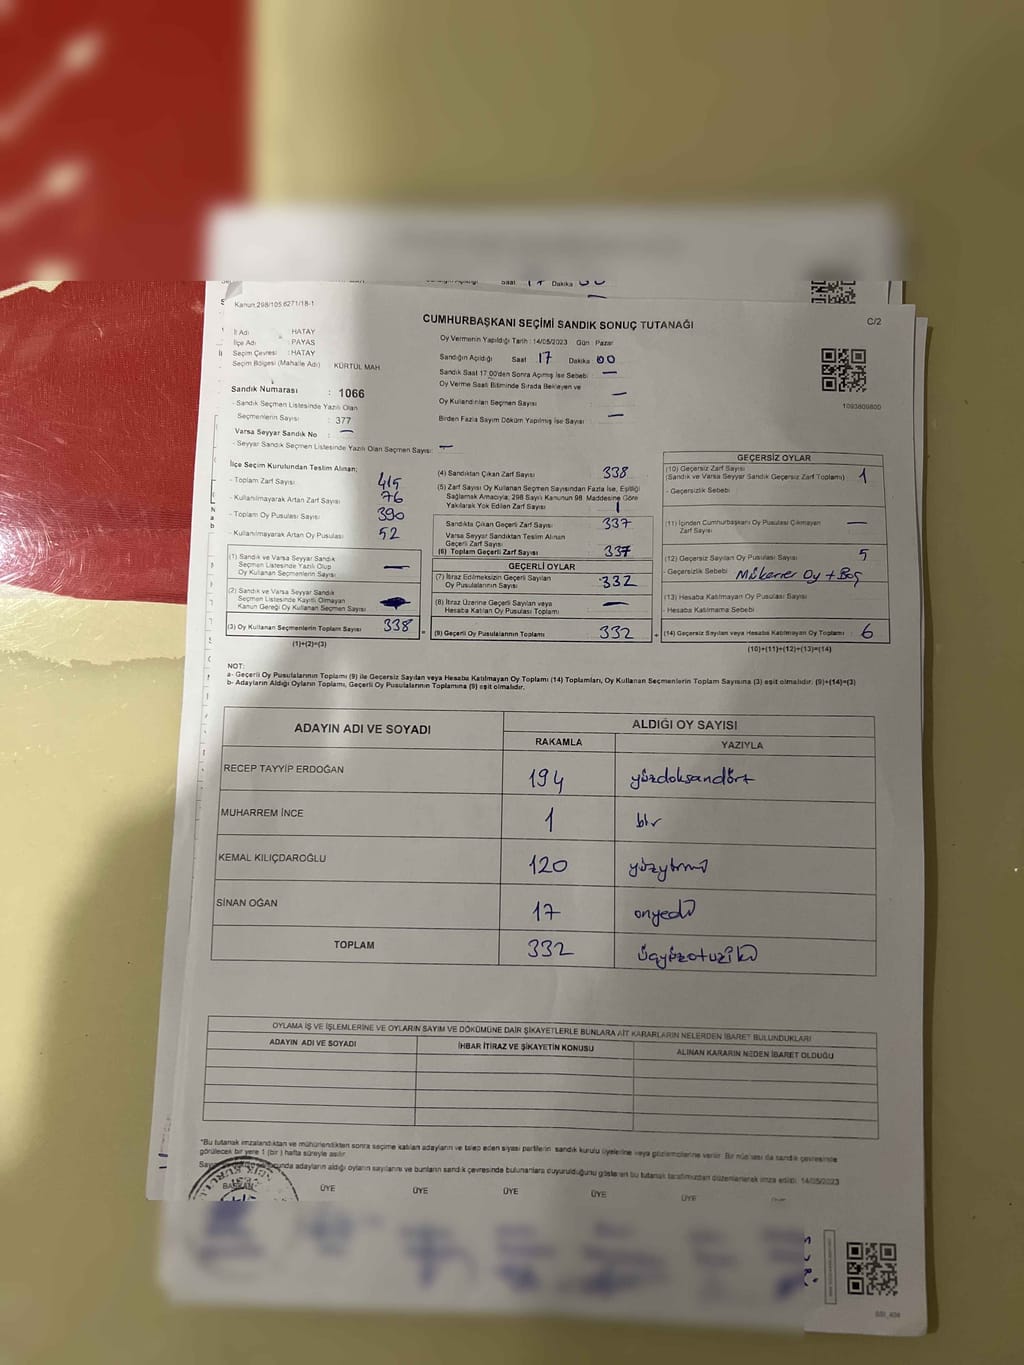 Saat 17 Dakika 00
Kanun:298/105 6271/18-1
CUMHURBAŞKANI SEÇİMİ SANDIK SONUÇ TUTANAĞI
C/2
İl Adı : HATAY
İlçe Adı : PAYAS
Seçim Çevresi : HATAY
Seçim Bölgesi (Mahalle Adı) : KÜRTÜL MAH
Sandık Numarası : 1066
- Sandık Seçmen Listesinde Yazılı Olan
Seçmenlerin Sayısı : 377
Varsa Seyyar Sandık No : —
- Seyyar Sandık Seçmen Listesinde Yazılı Olan Seçmen Sayısı: —
Oy Vermenin Yapıldığı Tarih : 14/05/2023 Gün : Pazar
Sandığın Açıldığı Saat 17 Dakika 00
Sandık Saat 17:00'den Sonra Açımış İse Sebebi : —
Oy Verme Saati Bitiminde Sırada Bekleyen ve
Oy Kullandırılan Seçmen Sayısı : —
Birden Fazla Sayım Döküm Yapılmış İse Sayısı : —
1093809800
İlçe Seçim Kurulundan Teslim Alınan;
- Toplam Zarf Sayısı : 415
- Kullanılmayarak Artan Zarf Sayısı : 76
- Toplam Oy Pusulası Sayısı : 390
- Kullanılmayarak Artan Oy Pusulası : 52
(1) Sandık ve Varsa Seyyar Sandık
Seçmen Listesinde Yazılı Olup
Oy Kullanan Seçmenlerin Sayısı : —
(2) Sandık ve Varsa Seyyar Sandık
Seçmen Listesinde Kayıtlı Olmayan
Kanun Gereği Oy Kullanan Seçmen Sayısı
(3) Oy Kullanan Seçmenlerin Toplam Sayısı : 338
(1)+(2)=(3)
(4) Sandıktan Çıkan Zarf Sayısı : 338
(5) Zarf Sayısı Oy Kullanan Seçmen Sayısından Fazla İse, Eşitliği
Sağlamak Amacıyla; 298 Sayılı Kanunun 98. Maddesine Göre
Yakılarak Yok Edilen Zarf Sayısı : 1
Sandıkta Çıkan Geçerli Zarf Sayısı : 337
Varsa Seyyar Sandıktan Teslim Alınan
Geçerli Zarf Sayısı :
(6) Toplam Geçerli Zarf Sayısı : 337
GEÇERLİ OYLAR
(7) İtiraz Edilmeksizin Geçerli Sayılan
Oy Pusulalarının Sayısı : 332
(8) İtiraz Üzerine Geçerli Sayılan veya
Hesaba Katılan Oy Pusulası Toplamı : —
(9) Geçerli Oy Pusulalarının Toplamı : 332
GEÇERSİZ OYLAR
(10) Geçersiz Zarf Sayısı
(Sandık ve Varsa Seyyar Sandık Geçersiz Zarf Toplamı) : 1
- Geçersizlik Sebebi
(11) İçinden Cumhurbaşkanı Oy Pusulası Çıkmayan
Zarf Sayısı : —
(12) Geçersiz Sayılan Oy Pusulası Sayısı : 5
- Geçersizlik Sebebi : Mükerrer Oy + Boş
(13) Hesaba Katılmayan Oy Pusulası Sayısı :
- Hesaba Katılmama Sebebi
(14) Geçersiz Sayılan veya Hesaba Katılmayan Oy Toplamı : 6
(10)+(11)+(12)+(13)=(14)
NOT:
a- Geçerli Oy Pusulalarının Toplamı (9) ile Geçersiz Sayılan veya Hesaba Katılmayan Oy Toplamı (14) Toplamları, Oy Kullanan Seçmenlerin Toplam Sayısına (3) eşit olmalıdır. (9)+(14)=(3)
b- Adayların Aldığı Oyların Toplamı, Geçerli Oy Pusulalarının Toplamına (9) eşit olmalıdır.
ADAYIN ADI VE SOYADI ALDIĞI OY SAYISI
RAKAMLA YAZIYLA
RECEP TAYYİP ERDOĞAN 194 yüzdoksandört
MUHARREM İNCE 1 bir
KEMAL KILIÇDAROĞLU 120 yüzyirmi
SİNAN OĞAN 17 onyedi
TOPLAM 332 üçyüzotuziki
OYLAMA İŞ VE İŞLEMLERİNE VE OYLARIN SAYIM VE DÖKÜMÜNE DAİR ŞİKAYETLERLE BUNLARA AİT KARARLARIN NELERDEN İBARET BULUNDUKLARI
ADAYIN ADI VE SOYADI İHBAR İTİRAZ VE ŞİKAYETİN KONUSU ALINAN KARARIN NEDEN İBARET OLDUĞU
*Bu tutanak imzalandıktan ve mühürlendikten sonra seçime katılan adayların ve talep eden siyasi partilerin sandık kurulu üyelerine veya gözlemcilerine verilir. Bir nüshası da sandık çevresinde
görülecek bir yere 1 (bir) hafta süreyle asılır.
adayların aldığı oyların sayılarını ve bunların sandık çevresinde bulunanlara duyurulduğunu gösteren bu tutanak tarafımızdan düzenlenerek imza edildi. 14/05/2023
BAŞKAN ÜYE ÜYE ÜYE ÜYE ÜYE